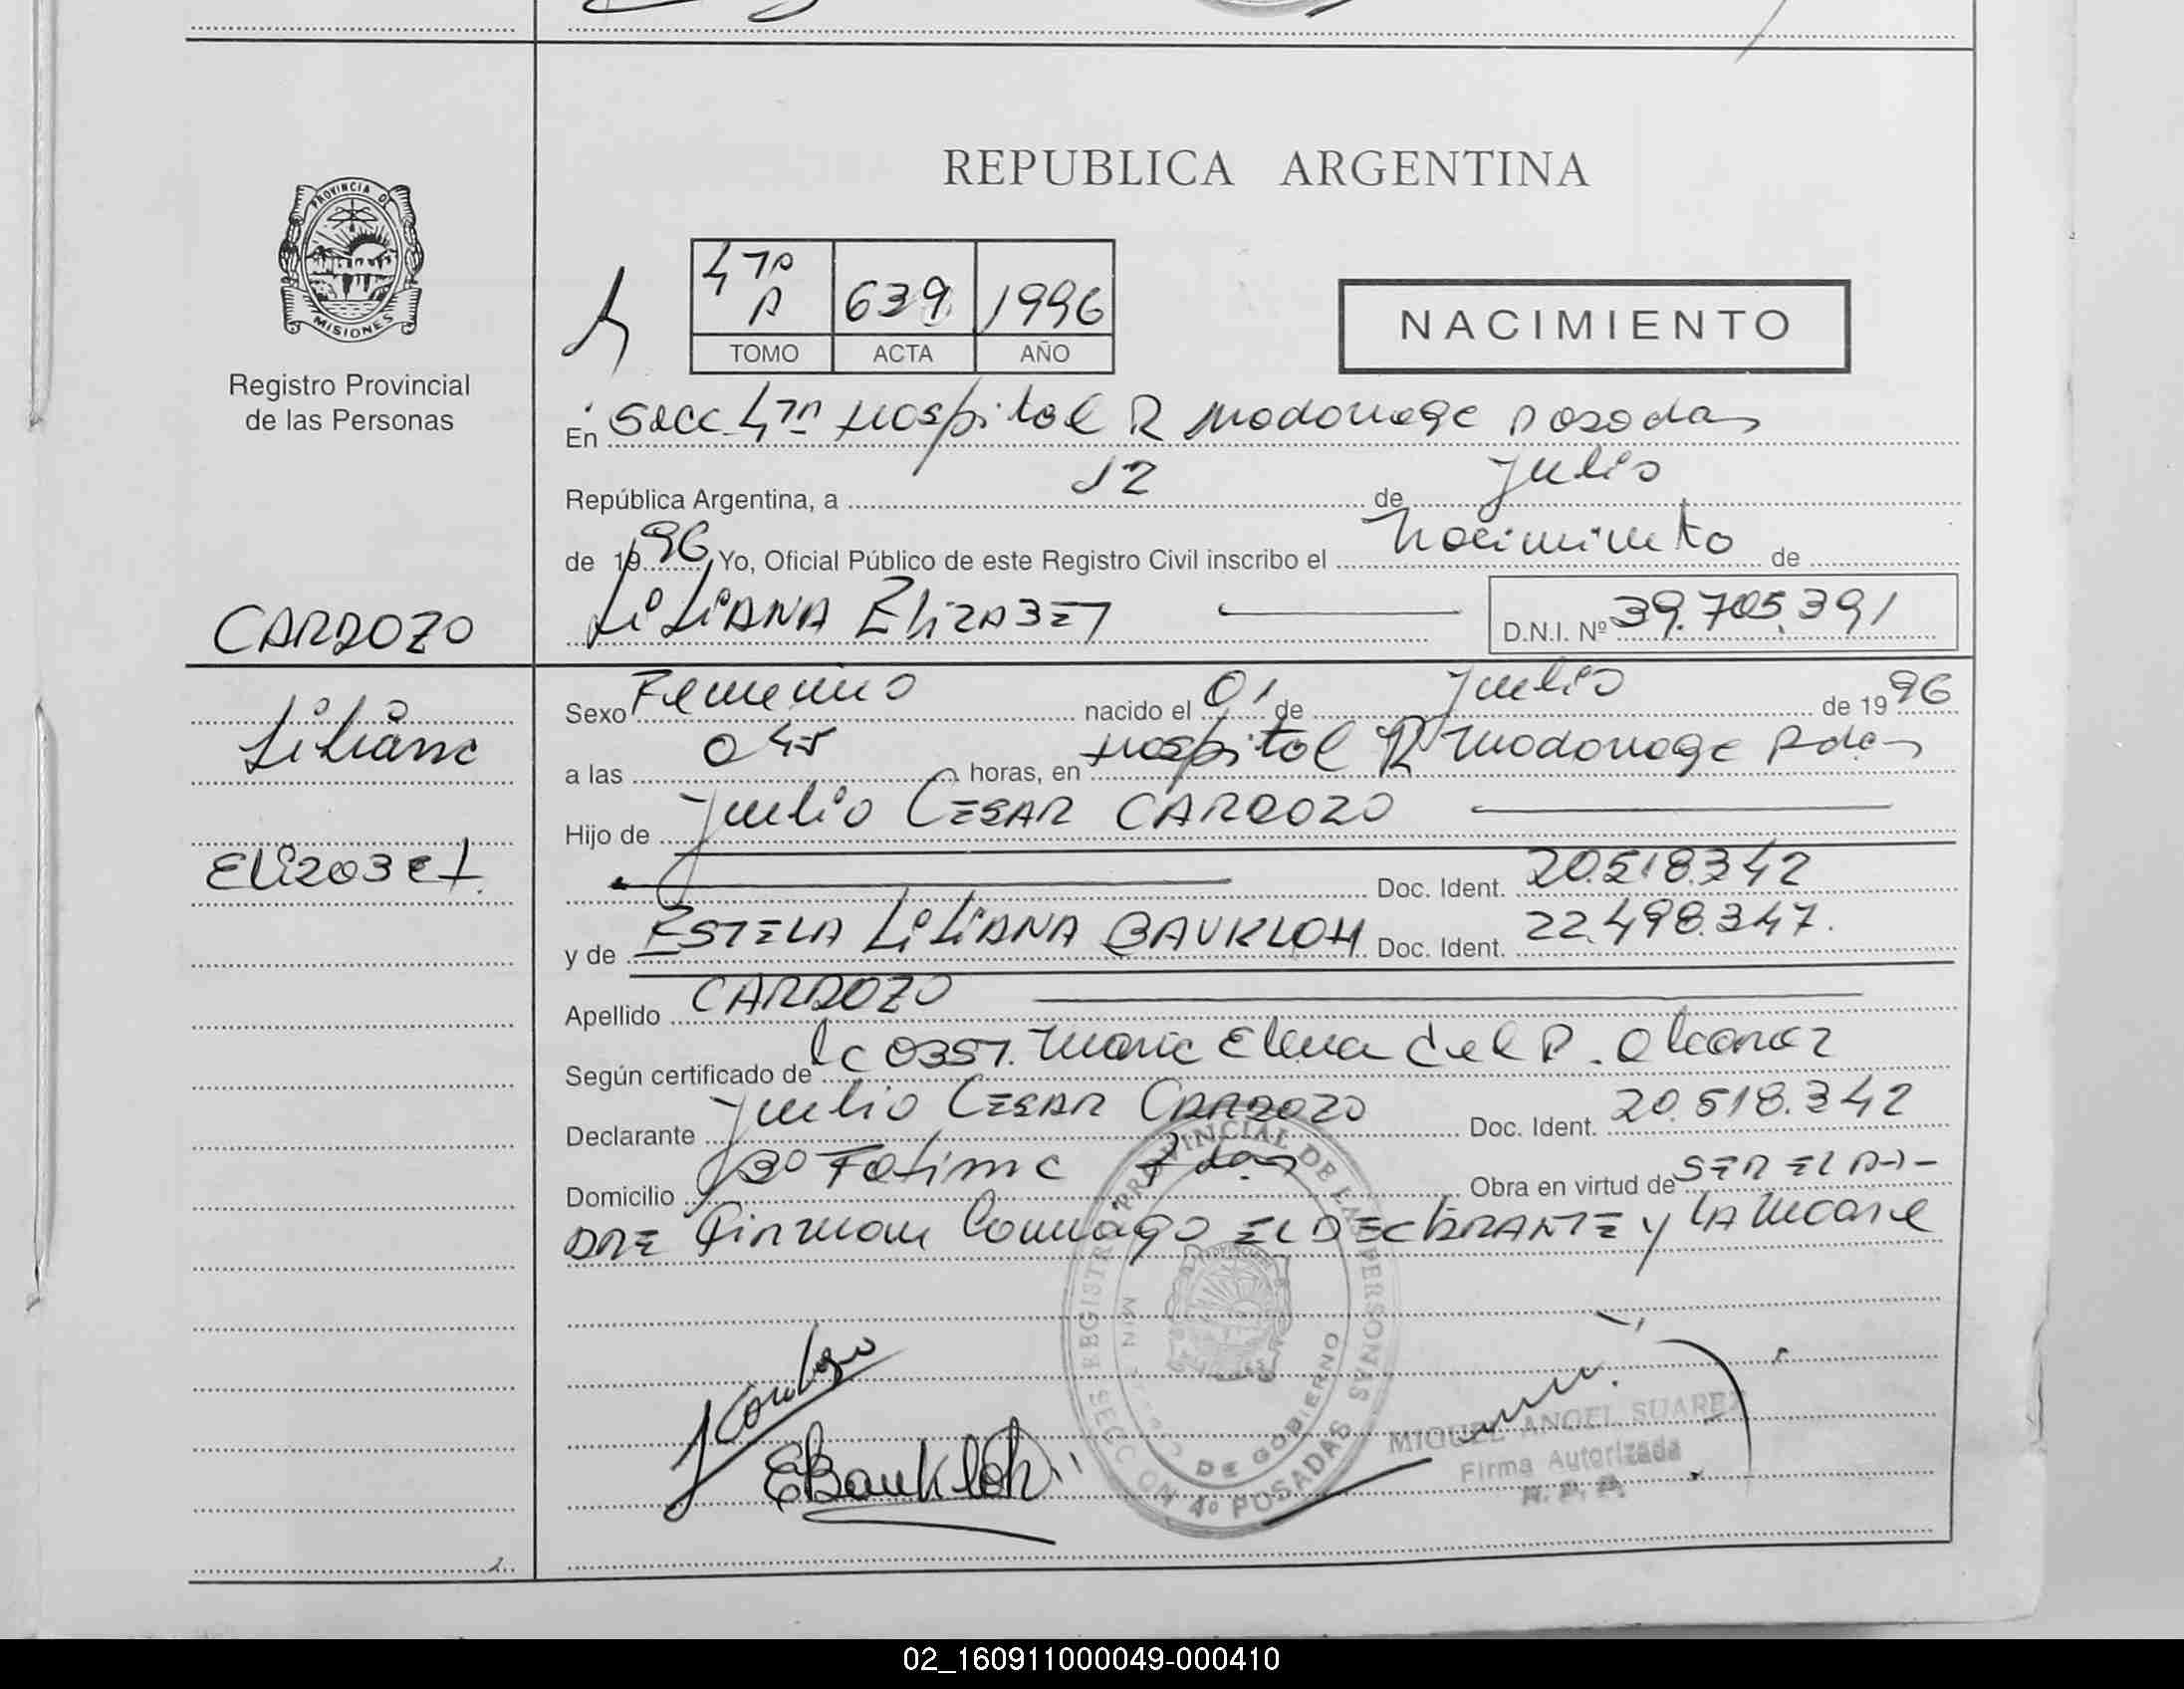 REPUBLICA ARGENTINA
PROVINCIA DE
MISIONES
Registro Provincial
de las Personas
4ta A 639 1996
TOMO ACTA AÑO
NACIMIENTO
En Secc 4ta Hospital R Madariaga Posadas
República Argentina, a 12 de Julio
de 1996, Yo, Oficial Público de este Registro Civil inscribo el Nacimiento de
CARDOZO
LiLiANA ELIZABET D.N.I. Nº 39.705.391
Liliana
Elizabet.
Sexo Femenino nacido el 01 de Julio de 1996
a las 045 horas, en Hospital R Madariaga Pdas
Hijo de Julio CESAR CARDOZO
Doc. Ident. 20.518.342
y de ESTELA LiLiANA BAUKLOH Doc. Ident. 22.498.347.
Apellido CARDOZO
Según certificado de lc OBST. Maria Elena del R. Alcaraz
Declarante Julio CESAR CARDOZO Doc. Ident. 20.518.342
Domicilio Bº Fatima Pdas Obra en virtud de SER EL PA-
DRE Firman Conmigo EL DECLARANTE y LA Madre
REGISTRO PROVINCIAL DE LAS PERSONAS
DE GOBIERNO
SECCION 4º POSADAS
EBaukloh
MIGUEL ANGEL SUAREZ
Firma Autorizada
R. P. P.
02_160911000049-000410